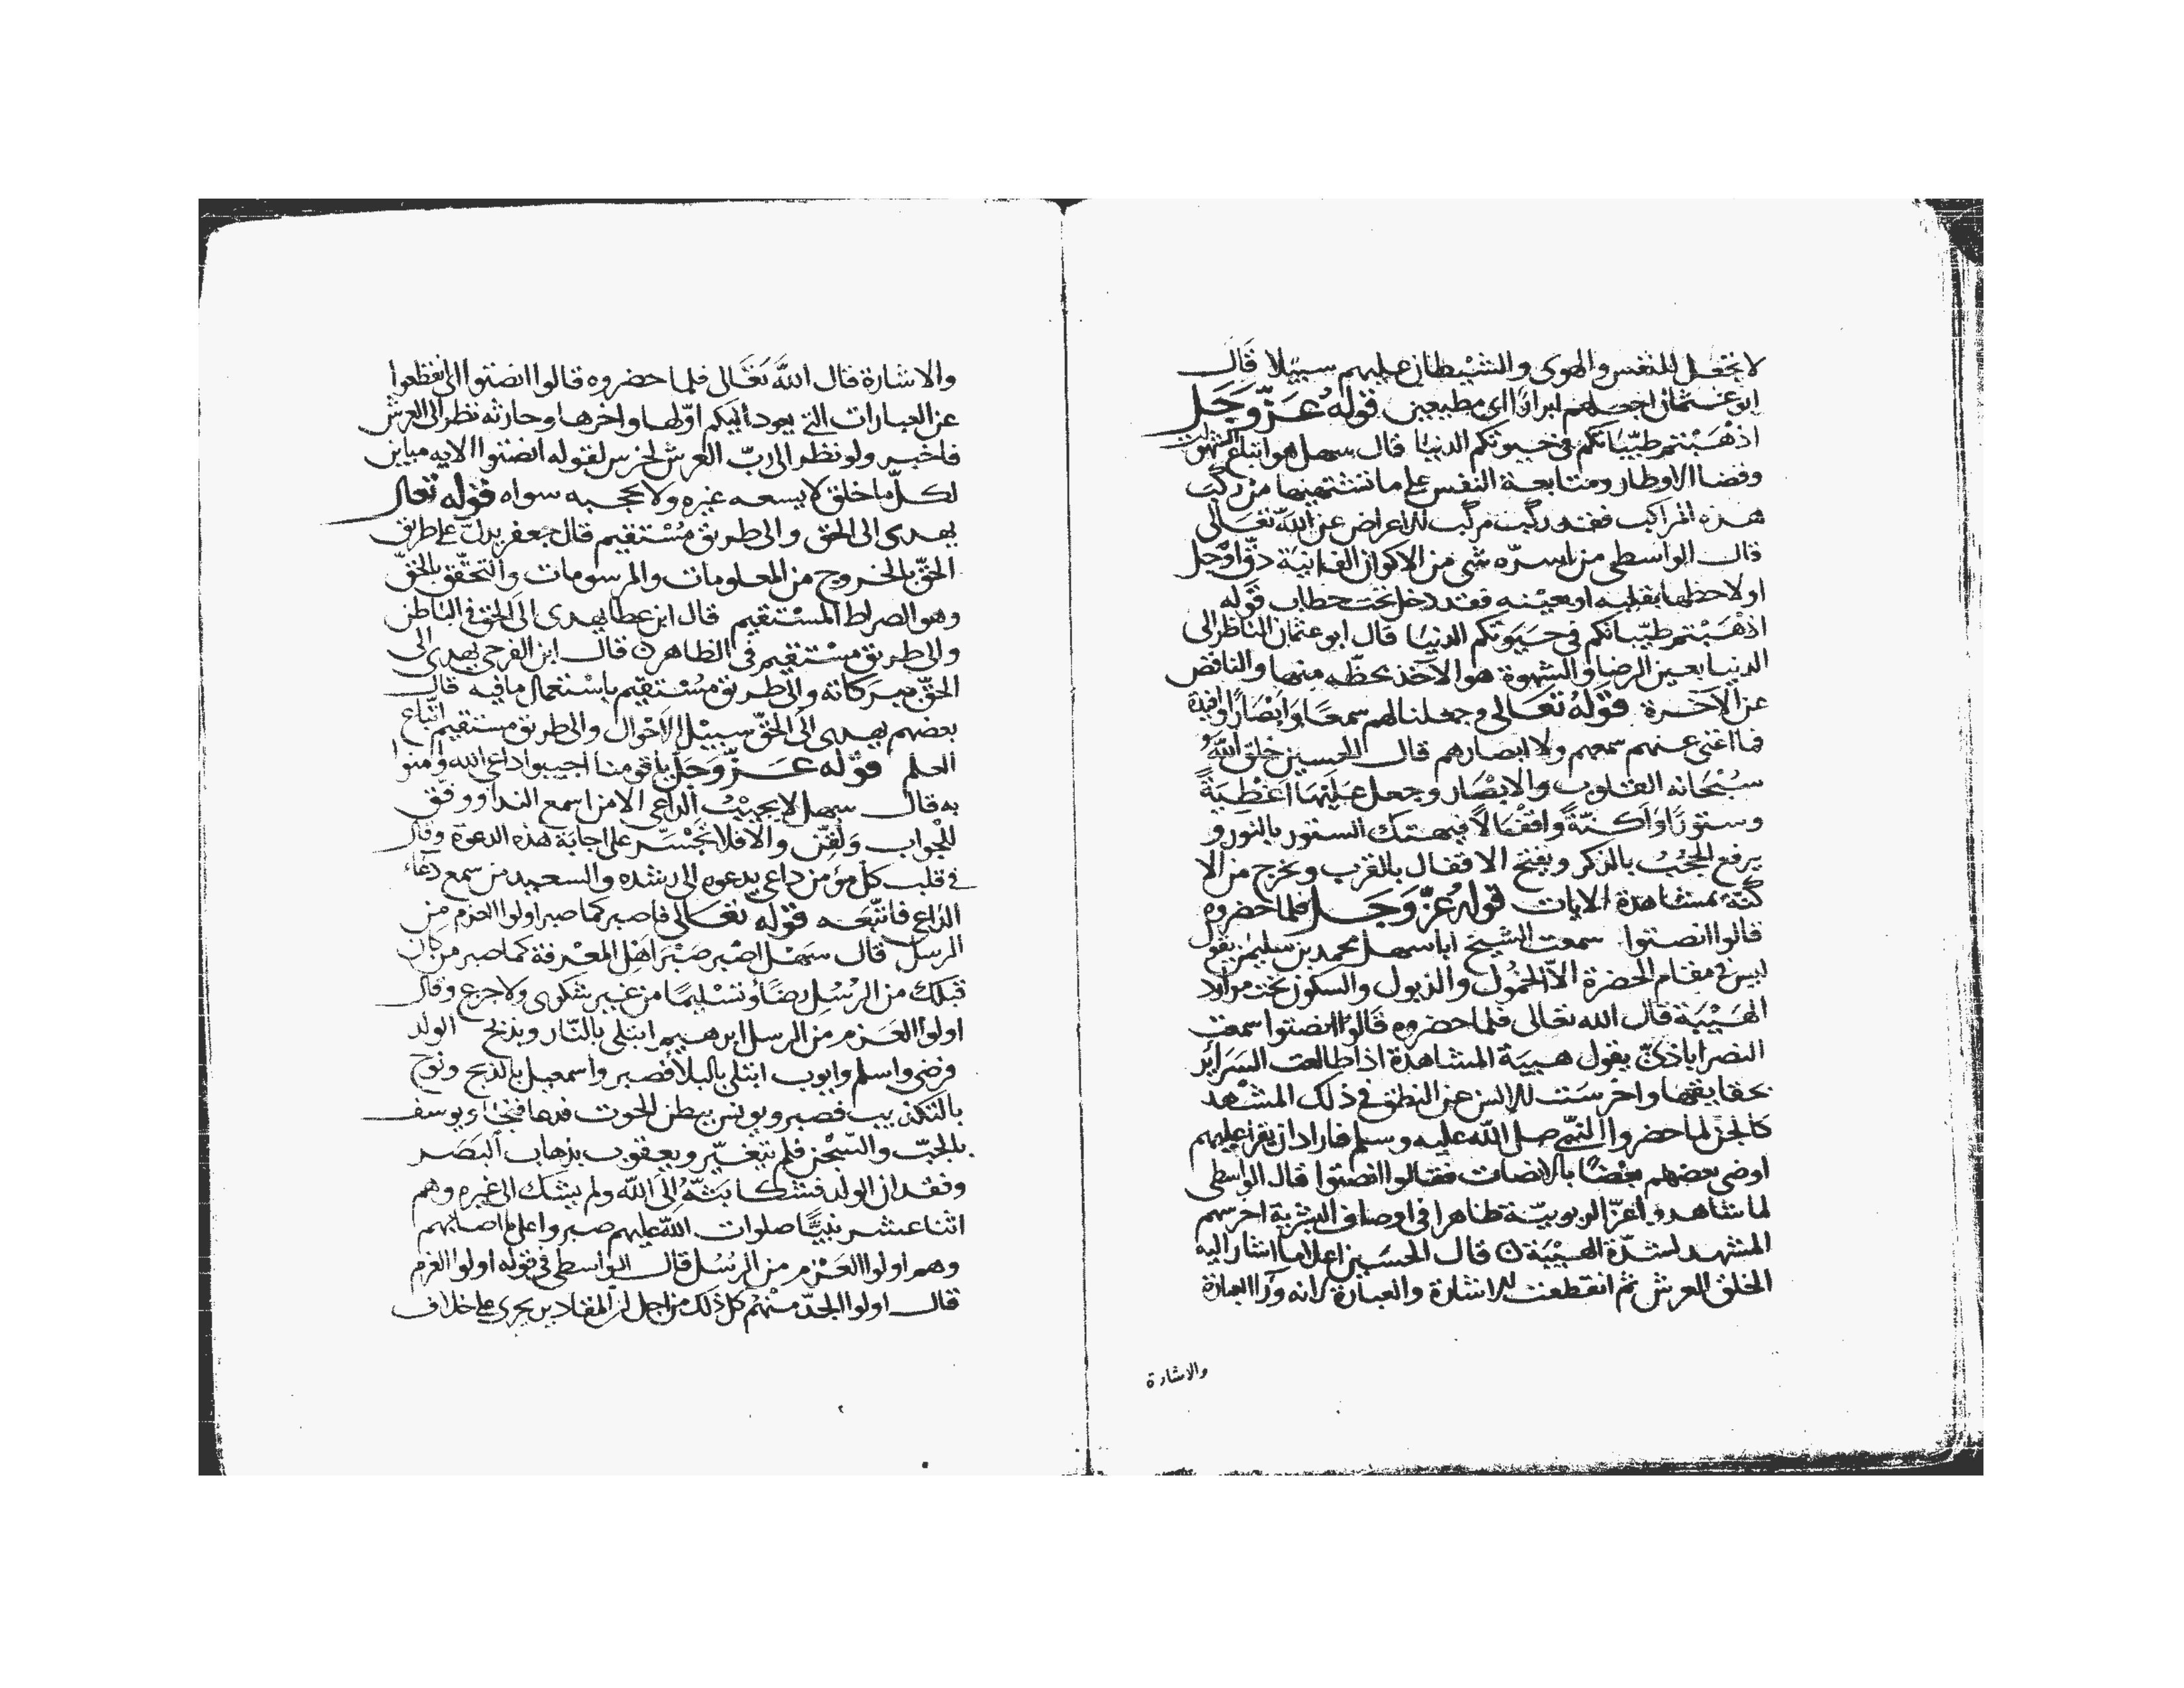 لا تجعل للنفس والهوى والشيطان عليهم سبيلا قال
ابو عثمان اجعلهم ابرارًا اى مطيعين قوله عز وجل
اذهبتم طيباتكم فى حيوتكم الدنيا قال سهل هو اتباع الشهوات
وقضا الاوطار ومتابعة النفس على ما تشتهيها من ركب
هذه المراكب فقد ركب مركب الاعراض عن الله تعالى
قال الواسطى من اسره شى من الاكوان الفانية دق او جل
او لاحظها بقلبه او بعينه فقد دخل تحت خطاب قوله
اذهبتم طيباتكم فى حيوتكم الدنيا قال ابو عثمان الناظر الى
الدنيا بعين الرضا والشهوة هو الآخذ بحظه منها والناقص
عن الآخرة قوله تعالى وجعلنا لهم سمعا وابصارا وافيدة
فما اغنى عنهم سمعهم ولا ابصارهم قال الحسين خلق الله
سبحانه القلوب والابصار وجعل عليها اغطية
وستورًا واكنةً واقفالاً فيهتك الستور بالنور و
يرفع الحجب بالذكر ويفتح الاقفال بالقرب ويخرج من الا
كنة بمشاهدة الايات قوله عز وجل فلما حضروه
قالوا انصتوا سمعت الشيخ ابا سهل محمد بن سليمن يقول
ليس فى مقام الحضرة الا الخمول والذبول والسكون تحت موارد
الهيبة قال الله تعالى فلما حضروه قالوا انصتوا سمعت
النصراباذى يقول هيبة المشاهدة اذا طالعت السرائر
بحقايقها واخرست الالسن عن النطق فى ذلك المشهد
كالجن لما حضروا النبى صلى الله عليه وسلم فاراد ان يقرا عليهم
اوصى بعضهم بعضًا بالانصات فقالوا انصتوا قال الواسطى
لما شاهدوا عز الربوبية ظاهرا فى اوصاف البشرية اخرسهم
المشهد لشدة الهيبة ن قال الحسين اعلا ما اشار اليه
الخلق العرش ثم انقطعت الاشارة والعبارة لانه ورا العبارة
والاشارة
والاشارة قال الله تعالى فلما حضروه قالوا انصتوا اى انقطعوا
عن العبارات التى يعود اليكم اولها واخرها وحارثه نظر الى العرش
فاخبر ولو نظر الى رب العرش لخرس لقوله انصتوا الايه مباين
لكل ما خلق لا يسعه غيره ولا يحجبه سواه قوله تعالى
يهدى الى الحق والى طريق مستقيم قال جعفر يدل على طريق
الحق بالخروج من المعلومات والمرسومات والتحقق بالحق
وهو الصراط المستقيم قال ابن عطا يهدى الى الحق فى الباطن
والى طريق مستقيم فى الظاهر ن قال ابن الفرحى يهدى الى
الحق ببركاته والى طريق مستقيم باستعمال ما فيه قال
بعضهم يهدى الى الحق سبيل الاحوال والى طريق مستقيم اتباع
العلم قوله عز وجل يا قومنا اجيبوا داعى الله وامنوا
به قال سهل لا يجيب الداعى الا من اسمع الندا ووفق
للجواب ولقن والا فلا يجسر على اجابة هذه الدعوة وقال
فى قلب كل مؤمن داعى يدعوه الى رشده والسعيد من سمع دعاء
الداعى فاتبعه قوله تعالى فاصبر كما صبر اولوا العزم من
الرسل قال سهل اصبر صبر اهل المعرفة كما صبر من كان
قبلك من الرسل رضًا وتسليمًا من غير شكوى ولا جزع وقال
اولوا العزم من الرسل ابرهيم ابتلى بالنار وبذبح الولد
فرضى واسلم وايوب ابتلى بالبلا فصبر واسمعيل بالذبح ونوح
بالتكذيب فصبر ويونس ببطن الحوت فدعا فنجا ويوسف
بالجب والسجن فلم يتغير ويعقوب بذهاب البصر
وفقدان الولد فشكا بثه الى الله ولم يشك الى غيره وهم
اثنا عشر نبيًا صلوات الله عليهم صبروا على ما اصابهم
وهم اولوا العزم من الرسل قال الواسطى فى قوله اولوا العزم
قال اولوا الجد منهم كل ذلك من اجل ان المقادير يجرى على خلاف